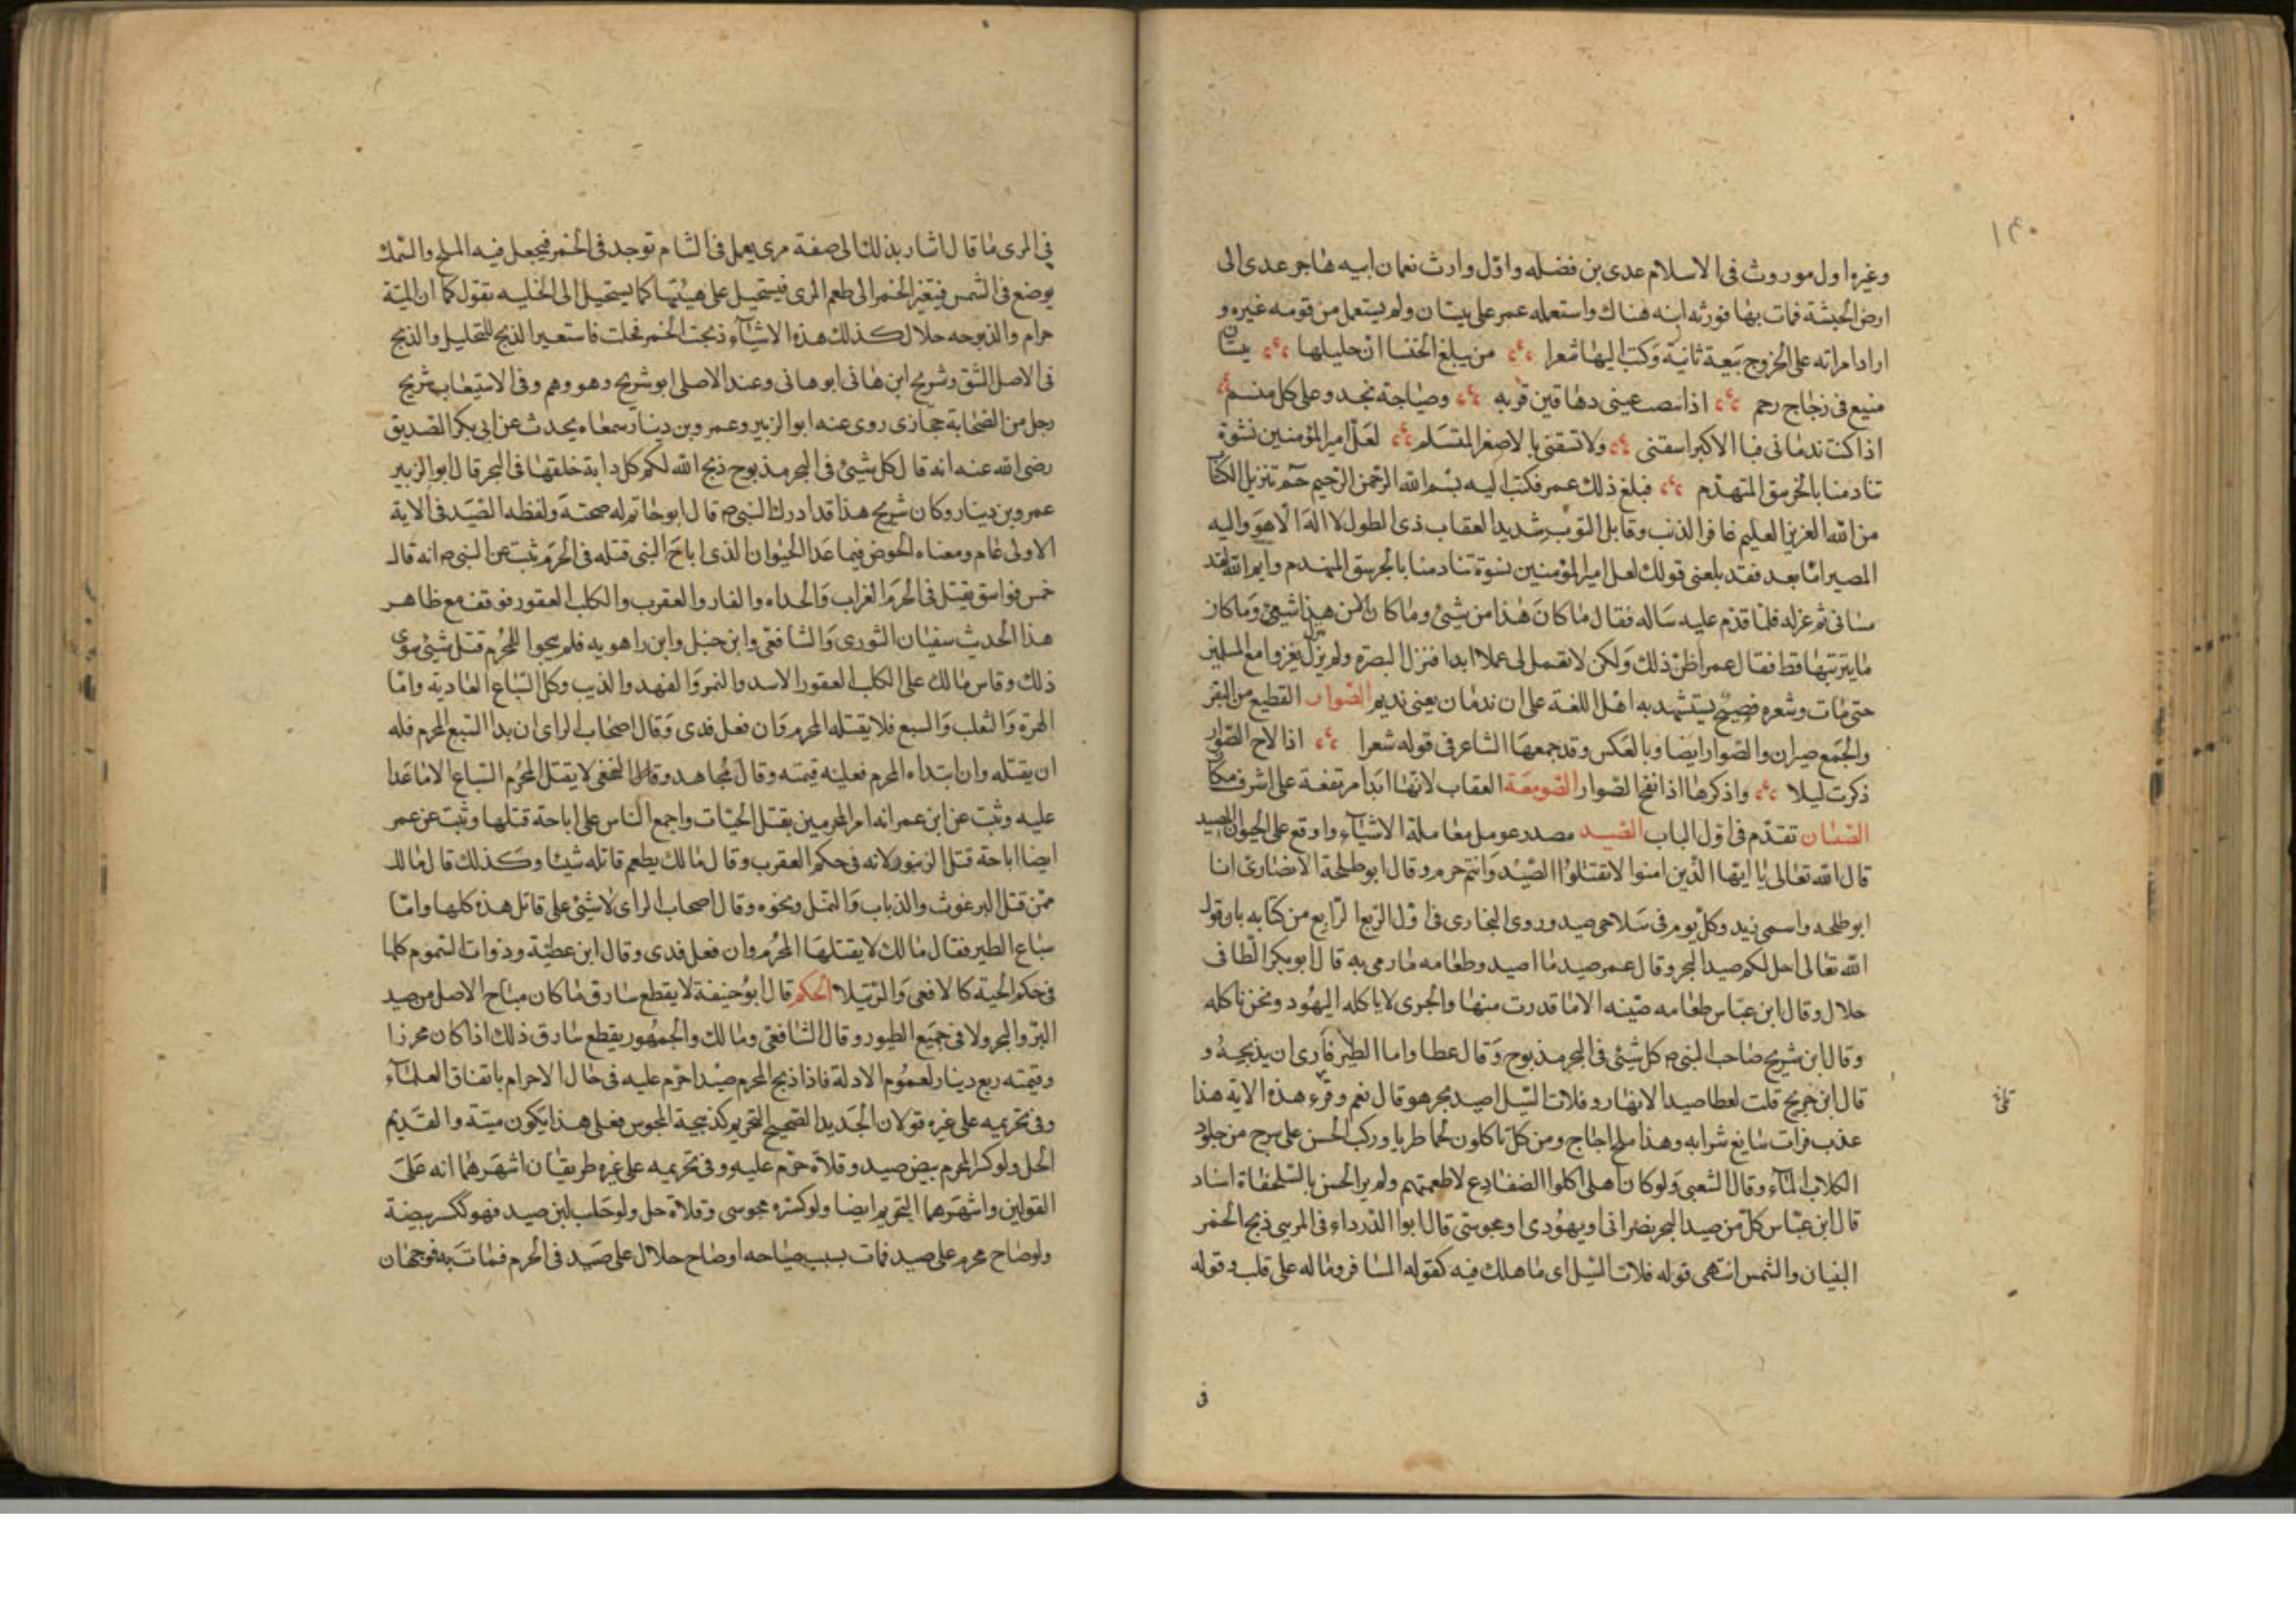 ١٤٠
وغيره اول موروث فى الاسلام عدى بن فضله واول وارث نعمان ابيه هاجر عدى الى
ارض الحبشة فمات بها فورثه ابنه هناك واستعمله عمر على بيسان ولم يستعمل من قومه غيره و
اراد امراته على الخروج بيعة ثانية وكتب اليها شعرا من يبلغ الخنسا ان حليلها بيسان
منيع فى زجاج رحم اذا نصب عينى دهاقين قربه وصياجة تجد وعلى كل منسم
اذا كنت ندمانى فبا الاكبر اسقنى ولا تسقنى بالاصغر المتسلم لعل امير المؤمنين نشوة
تنادمنا بالخرسق المتهدم فبلغ ذلك عمر فكتب اليه بسم الله الرحمن الرحيم حم تنزيل الكتا
من الله العزيز العليم غافر الذنب وقابل التوب شديد العقاب ذى الطول لا اله الا هو واليه
المصير اما بعد فقد بلغنى قولك لعل امير المؤمنين نشوة تنادمنا بالجرسق المنهدم وايم الله لقد
سانى ثم عزله فلما قدم عليه ساله فقال ما كان هذا من شيئ وما كان الا من هذا شيئ وما كان
ما يترتبها قط فقال عمر اظن ذلك ولكن لا تعمل لى عملا ابدا فنزل البصرة ولم يزل يغزوا مع المسلمين
حتى مات وشعره فصيح يستشهد به اهل اللغة على ان ندمان يعنى نديم الصوار القطيع من البقر
والجمع صيران والصوار ايضا وبالعكس وقد جمعها الشاعر فى قوله شعرا اذا لاح الصوار
ذكرت ليلا واذكرها اذا نفح الصوار الصومعة العقاب لانها ابدا مرتفعة على اشرف مكان
الصيبان تقدم فى اول الباب الصيد مصدر عومل معاملة الاشياء واوقع على الحيوان المصيد
قال الله تعالى يا ايها الذين امنوا لا تقتلوا الصيد وانتم حرم وقال ابو طلحة الانصارى انا
ابو طلحه واسمى زيد وكل يوم فى سلاحى صيد وروى البخارى فى اول الربع الرابع من كتابه باب قول
الله تعالى احل لكم صيد البحر وقال عمر صيد ما اصيد وطعامه ما رمى به قال ابو بكر الطافى
حلال وقال ابن عباس طعامه ميتنه الا ما قدرت منها والجرى لا ياكله اليهود ونحن ناكله
وقال ابن شريح صاحب النبى ص كل شئ فى البحر مذبوح وقال عطا واما الطير فارى ان يذبحه و
قال ابن جريح قلت لعطا صيد الانهار وفلات السيل اصيد بحر هو قال نعم وقرء هذه الاية هذا
عذب فرات سايغ شرابه وهذا ملح اجاج ومن كل تاكلون لحما طريا وركب الحسن على سرج من جلود
الكلاب الماء وقال الشعبى ولو كان اهلى اكلوا الضفادع لاطعمتهم ولم ير الحسن بالسلحفاة اساد
قال ابن عباس كل من صيد البحر نصرانى او يهودى او مجوسى قال ابوا الدرداء فى المرى ذبح الخمر
النينان والشمس انتهى قوله فلات السيل اى ما هلك فيه كقوله المسافر وماله على قلب وقوله
فى
فى المرى ما قال اشار بذلك الى صفة مرى يعمل فى الشام توجد فى الخمر فيجعل فيه الملح والسمك
يوضع فى الشمس فيتغير الخمر الى طعم المرى فيستحيل على هيئتها كما يستحيل الى الخليه تقول كما ان الميتة
حرام والذبوحه حلال كذلك هذه الاشياء ذبحت الخمر فحلت فاستعير الذبح للتحليل والذبح
فى الاصل الشق وشريح ابن هانى ابو هانى وعند الاصلى ابو شريح وهو وهم وفى الاستيعاب شريح
رجل من الصحابة حجازى روى عنه ابو الزبير وعمرو بن دينار سمعاه يحدث عن ابى بكر الصديق
رضى الله عنه انه قال كل شيئ فى البحر مذبوح ذبح الله لكم كل دابة خلقها فى البحر قال ابو الزبير
عمرو بن دينار وكان شريح هذا قد ادرك النبى ص قال ابو حاتم له صحبة ولفظه الصيد فى الاية
الاولى عام ومعناه الخوض فيما عدا الحيوان الذى اباح النبى قتله فى الحرم ثبت عن النبى ص انه قال
خمس فواسق يقتل فى الحرم الغراب والحداه والفار والعقرب والكلب العقور فوقف مع ظاهر
هذا الحديث سفيان الثورى والشافعى وابن حنبل وابن راهويه فلم يبحوا للمحرم قتل شيئ سوى
ذلك وقاس مالك على الكلب العقور الاسد والنمر والفهد والذيب وكل السباع العادية واما
الهرة والثعلب والسبع فلا يقتله المحرم وان فعل فدى وقال اصحاب الراى ان بدا السبع المحرم فله
ان يقتله وان ابتداه المحرم فعليه قيمته وقال مجاهد وقال النخعى لا يقتل المحرم السباع الا ما عدا
عليه وثبت عن ابن عمر انه امر المحرمين بقتل الحيات واجمع الناس على اباحة قتلها وثبت عن عمر
ايضا اباحة قتل الزنبور لانه فى حكم العقرب وقال مالك يطعم قاتله شيئا وكذلك قال مالك
ممن قتل البرغوث والذباب والنمل ونحوه وقال اصحاب الراى لا شئ على قاتل هذه كلها واما
سباع الطير فقال مالك لا يقتلها المحرم وان فعل فدى وقال ابن عطية وذوات السموم كلها
فى حكم الحية كالافعى والرتيلا الحكم قال ابو حنيفة لا يقطع سارق ما كان مباح الاصل من صيد
البر والبحر ولا فى جميع الطيور وقال الشافعى ومالك والجمهور يقطع سارق ذلك اذا كان محرزا
وقيمته ربع دينار لعموم الادلة فاذا ذبح المحرم صيدا حرم عليه فى حال الاحرام باتفاق العلماء
وفى تحريمه على غيره قولان الجديد الصحيح التحريم كذبيحة المجوس فعلى هذا يكون ميتة والقديم
الحل ولو كسر المحرم بيض صيد وقلاه حرم عليه وفى تحريمه على غيره طريقان اشهرهما انه على
القولين واشهرهما التحريم ايضا ولو كسره مجوسى وقلاه حل ولو حلب لبن صيد فهو ككسر بيضة
ولو صاح محرم على صيد فمات بسبب صياحه او صاح حلال على صيد فى الحرم فمات به فوجهان